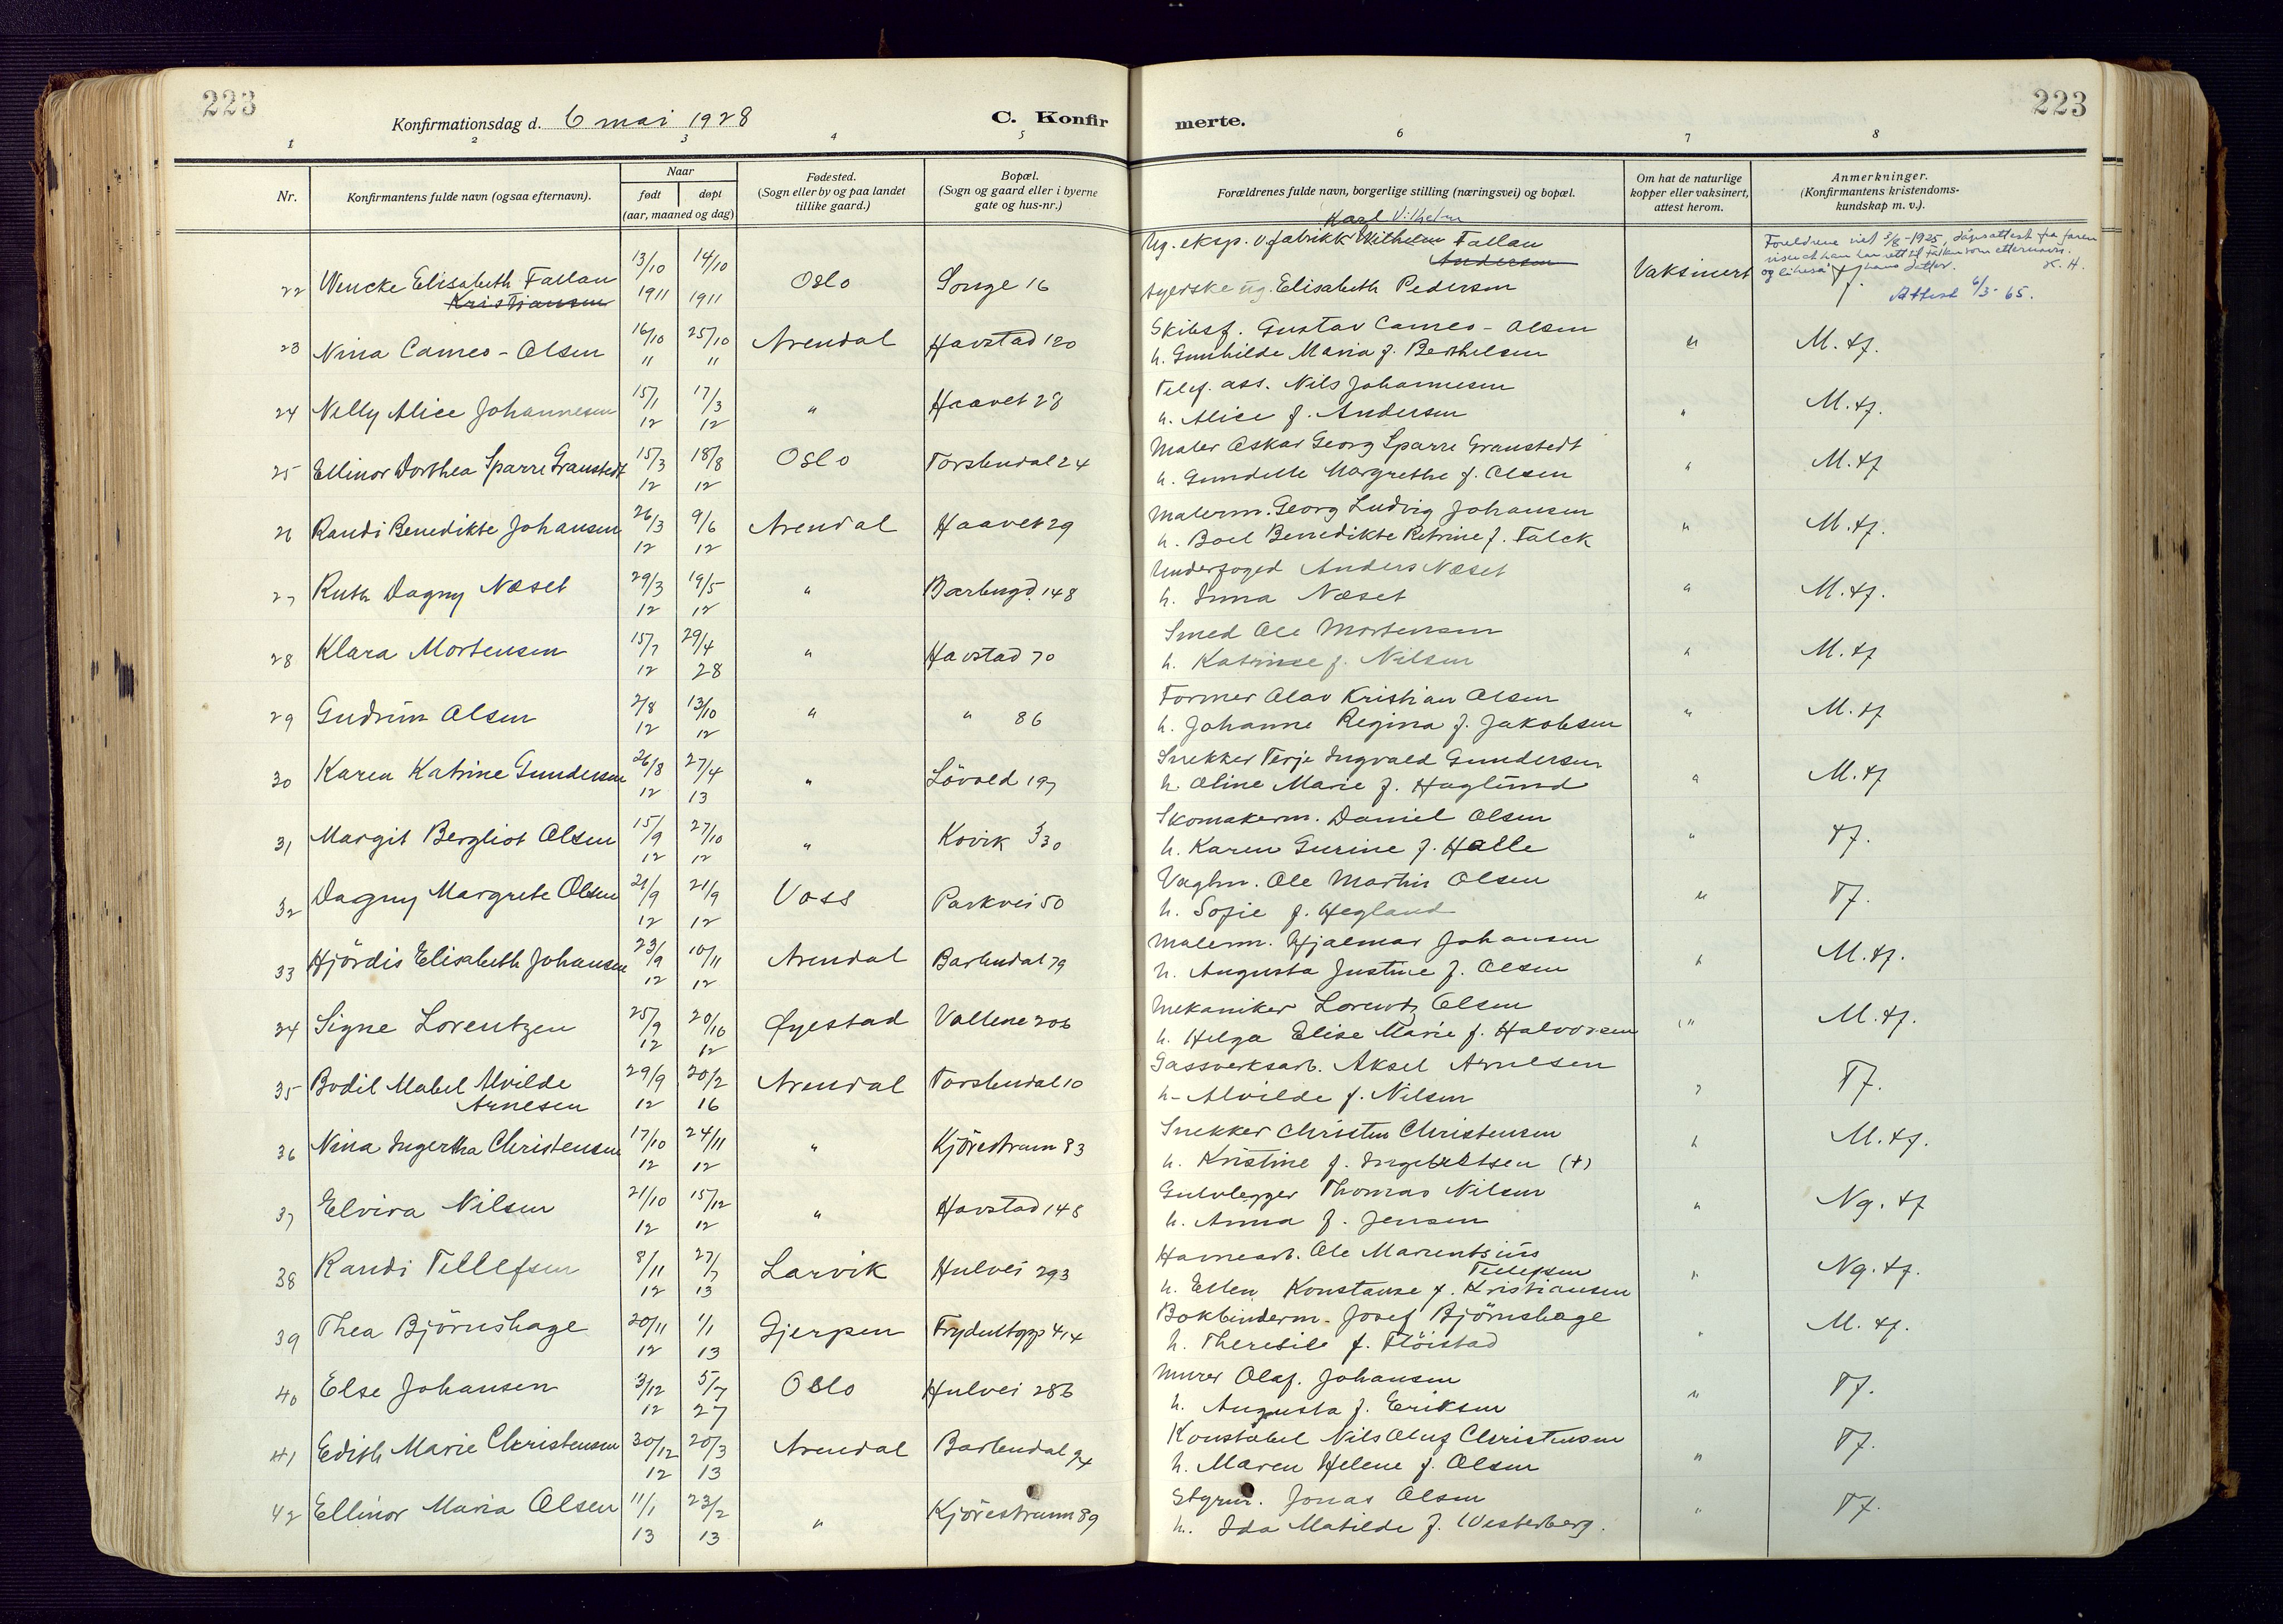 223
223
Konfirmationsdag d. 6 mai 1928
C. Konfirmerte.
1 2 3 4 5 6 7 8
Nr.
Konfirmantens fulde navn (ogsaa efternavn).
Naar
født
døpt
(aar, maaned og dag)
Fødested.
(Sogn eller by og paa landet
tillike gaard.)
Bopæl.
(Sogn og gaard eller i byerne
gate og hus-nr.)
Forældrenes fulde navn, borgerlige stilling (næringsvei) og bopæl.
Om hat de naturlige
kopper eller vaksinert,
attest herom.
Anmerkninger.
(Konfirmantens kristendoms-
kundskap m. v.).
Karl Vilhelm
22 Wencke Elisabeth Fallan 13/10 1911 14/10 1911 Oslo Songe 16 Wilhelm Fallan Vaksinert
Kristiansen
Andersen
Elisabeth Pedersen
Attest 6/3-65.
K. H.
23 Nina Cameo-Olsen 16/10 11 25/10 11 Arendal Havstad 120 Skibsf. Gustav Cameo-Olsen " M. tf.
h. Gunhilde Maria f. Berthelsen
24 Nelly Alice Johannesen 15/1 12 17/3 12 " Haavet 28 Telef. ass. Nils Johannesen " M. tf.
h. Alice f. Andersen
25 Ellinor Dorthea Sparre Granstedt 15/3 12 18/8 12 Oslo Torsbudal 24 Maler Oskar Georg Sparre Granstedt " M. tf
h. Gundelle Margrethe f. Olsen
26 Randi Benedikte Johansen 26/3 12 9/6 12 Arendal Haavet 29 Malerm. Georg Ludvig Johansen " M. tf.
h. Boel Benedikte Petrine f. Falck
27 Ruth Dagny Næset 29/3 12 19/5 12 " Barbugd. 148 Underfoged Anders Næset " M. tf.
h. Inna Næset
28 Klara Mortensen 15/7 12 29/4 28 " Havstad 70 Smed Ole Mortensen " M. tf
h. Katrine f. Nilsen
29 Gudrun Olsen 2/8 12 13/10 12 " " 86 Former Olav Kristian Olsen " M. tf
h. Johanne Regina f. Jakobsen
30 Karen Katrine Gundersen 26/8 12 27/4 13 " Lövold 197 Snekker Terje Ingvald Gundersen " M. tf
h. Oline Marie f. Haglund
31 Margit Bergliot Olsen 15/9 12 27/10 12 " Kovik 330 Skomakerm. Daniel Olsen " tf.
h. Karen Gurine f. Halle
32 Dagny Margrete Olsen 21/9 12 21/9 12 Voss Parkvei 50 Vagtm. Ole Martin Olsen " Tf.
h. Sofie f. Hegland
33 Hjördis Elisabeth Johansen 23/9 12 10/11 12 Arendal Barbudal 79 Malerm. Hjalmar Johansen " M. tf.
h. Augusta Justine f. Olsen
34 Signe Lorentzen 25/9 12 20/10 12 Øyestad Vallene 206 Mekaniker Lorentz Olsen " M. tf.
h. Helga Elise Marie f. Halvorsen
35 Bodil Mabel Alvilde 29/9 12 20/2 16 Arendal Torsbudal 10 Gassverksarb. Aksel Arnesen " Tf.
Arnesen
h. Alvilde f. Nilsen
36 Nina Ingertha Christensen 17/10 12 24/11 12 " Kjörestrann 83 Snekker Christen Christensen " M. tf.
h. Kristine f. Ingebretsen (+)
37 Elvira Nilsen 21/10 12 15/12 12 " Havstad 148 Gulvlegger Thomas Nilsen " Ng. tf
h. Anna f. Jensen
38 Randi Tellefsen 8/11 12 27/7 13 Larvik Hulvei 293 Havnearb. Ole Marentsius " Ng. tf.
Tellefsen
h. Ellen Konstanse f. Kristiansen
39 Thea Björnshage 20/11 12 1/1 13 Gjerpen 414 Bokbinderm. Josef Björnshage " M. tf.
h. Theresile f. Flöistad
40 Else Johansen 3/12 12 5/7 27 Oslo Hulvei 286 Murer Olaf. Johansen " Tf.
h. Augusta f. Eriksen
41 Edith Marie Christensen 30/12 12 20/3 13 Arendal Barbudal 94 Konstabel Nils Oluf Christensen " Tf.
h. Maren Helene f. Olsen
42 Ellinor Maria Olsen 11/1 13 23/2 13 " Kjörestrann 89 Styrm. Jonas Olsen " Tf.
h. Ida Matilde f. Westerberg.